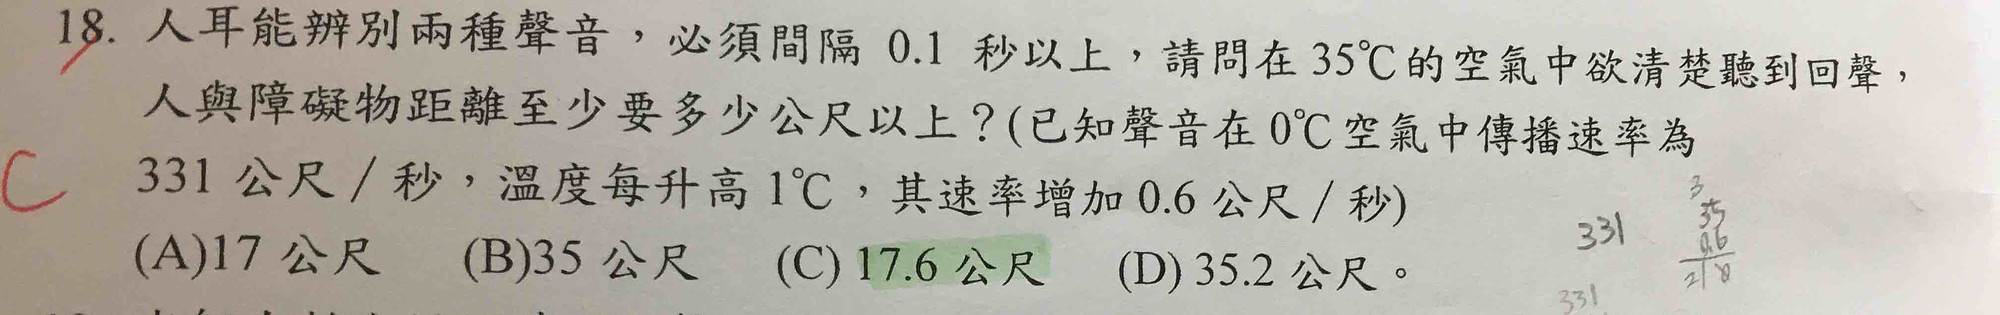 18. 人耳能辨別兩種聲音，必須間隔 0.1 秒以上，請問在 35℃的空氣中欲清楚聽到回聲，
人與障礙物距離至少要多少公尺以上？(已知聲音在 0℃空氣中傳播速率為
C
331 公尺／秒，溫度每升高 1℃，其速率增加 0.6 公尺／秒)
(A)17 公尺 (B)35 公尺 (C) 17.6 公尺 (D) 35.2 公尺。
331
3
35
0.6
210
331